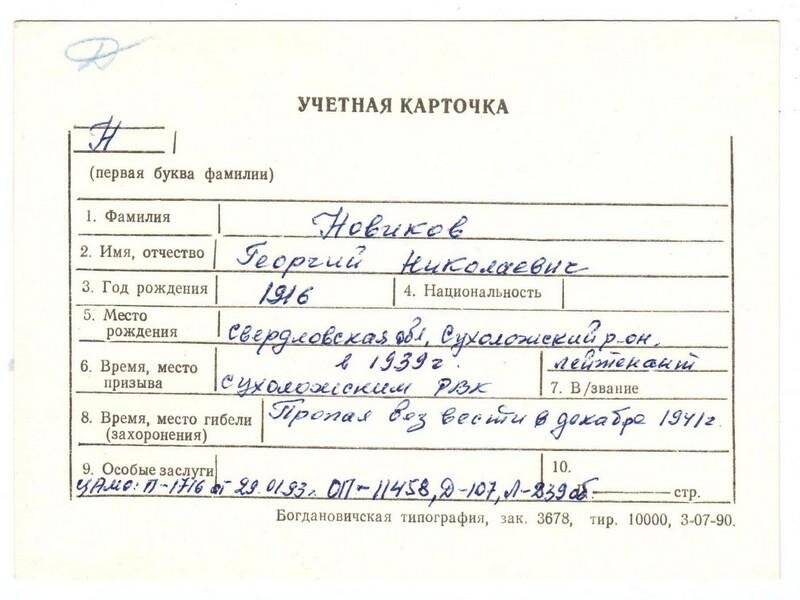 Д
УЧЕТНАЯ КАРТОЧКА
Н
(первая буква фамилии)
1. Фамилия Новиков
2. Имя, отчество Георгий Николаевич
3. Год рождения 1916 4. Национальность
5. Место рождения Свердловская обл, Сухоложский р-он.
6. Время, место призыва в 1939г. Сухоложским РВК
лейтенант
7. В/звание
8. Время, место гибели (захоронения) Пропал без вести в декабре 1941г.
9. Особые заслуги 10.
ЦАМО: П-1716 от 29.01.93г. ОП-11458, Д-107, Л-239об стр.
Богдановичская типография, зак. 3678, тир. 10000, 3-07-90.